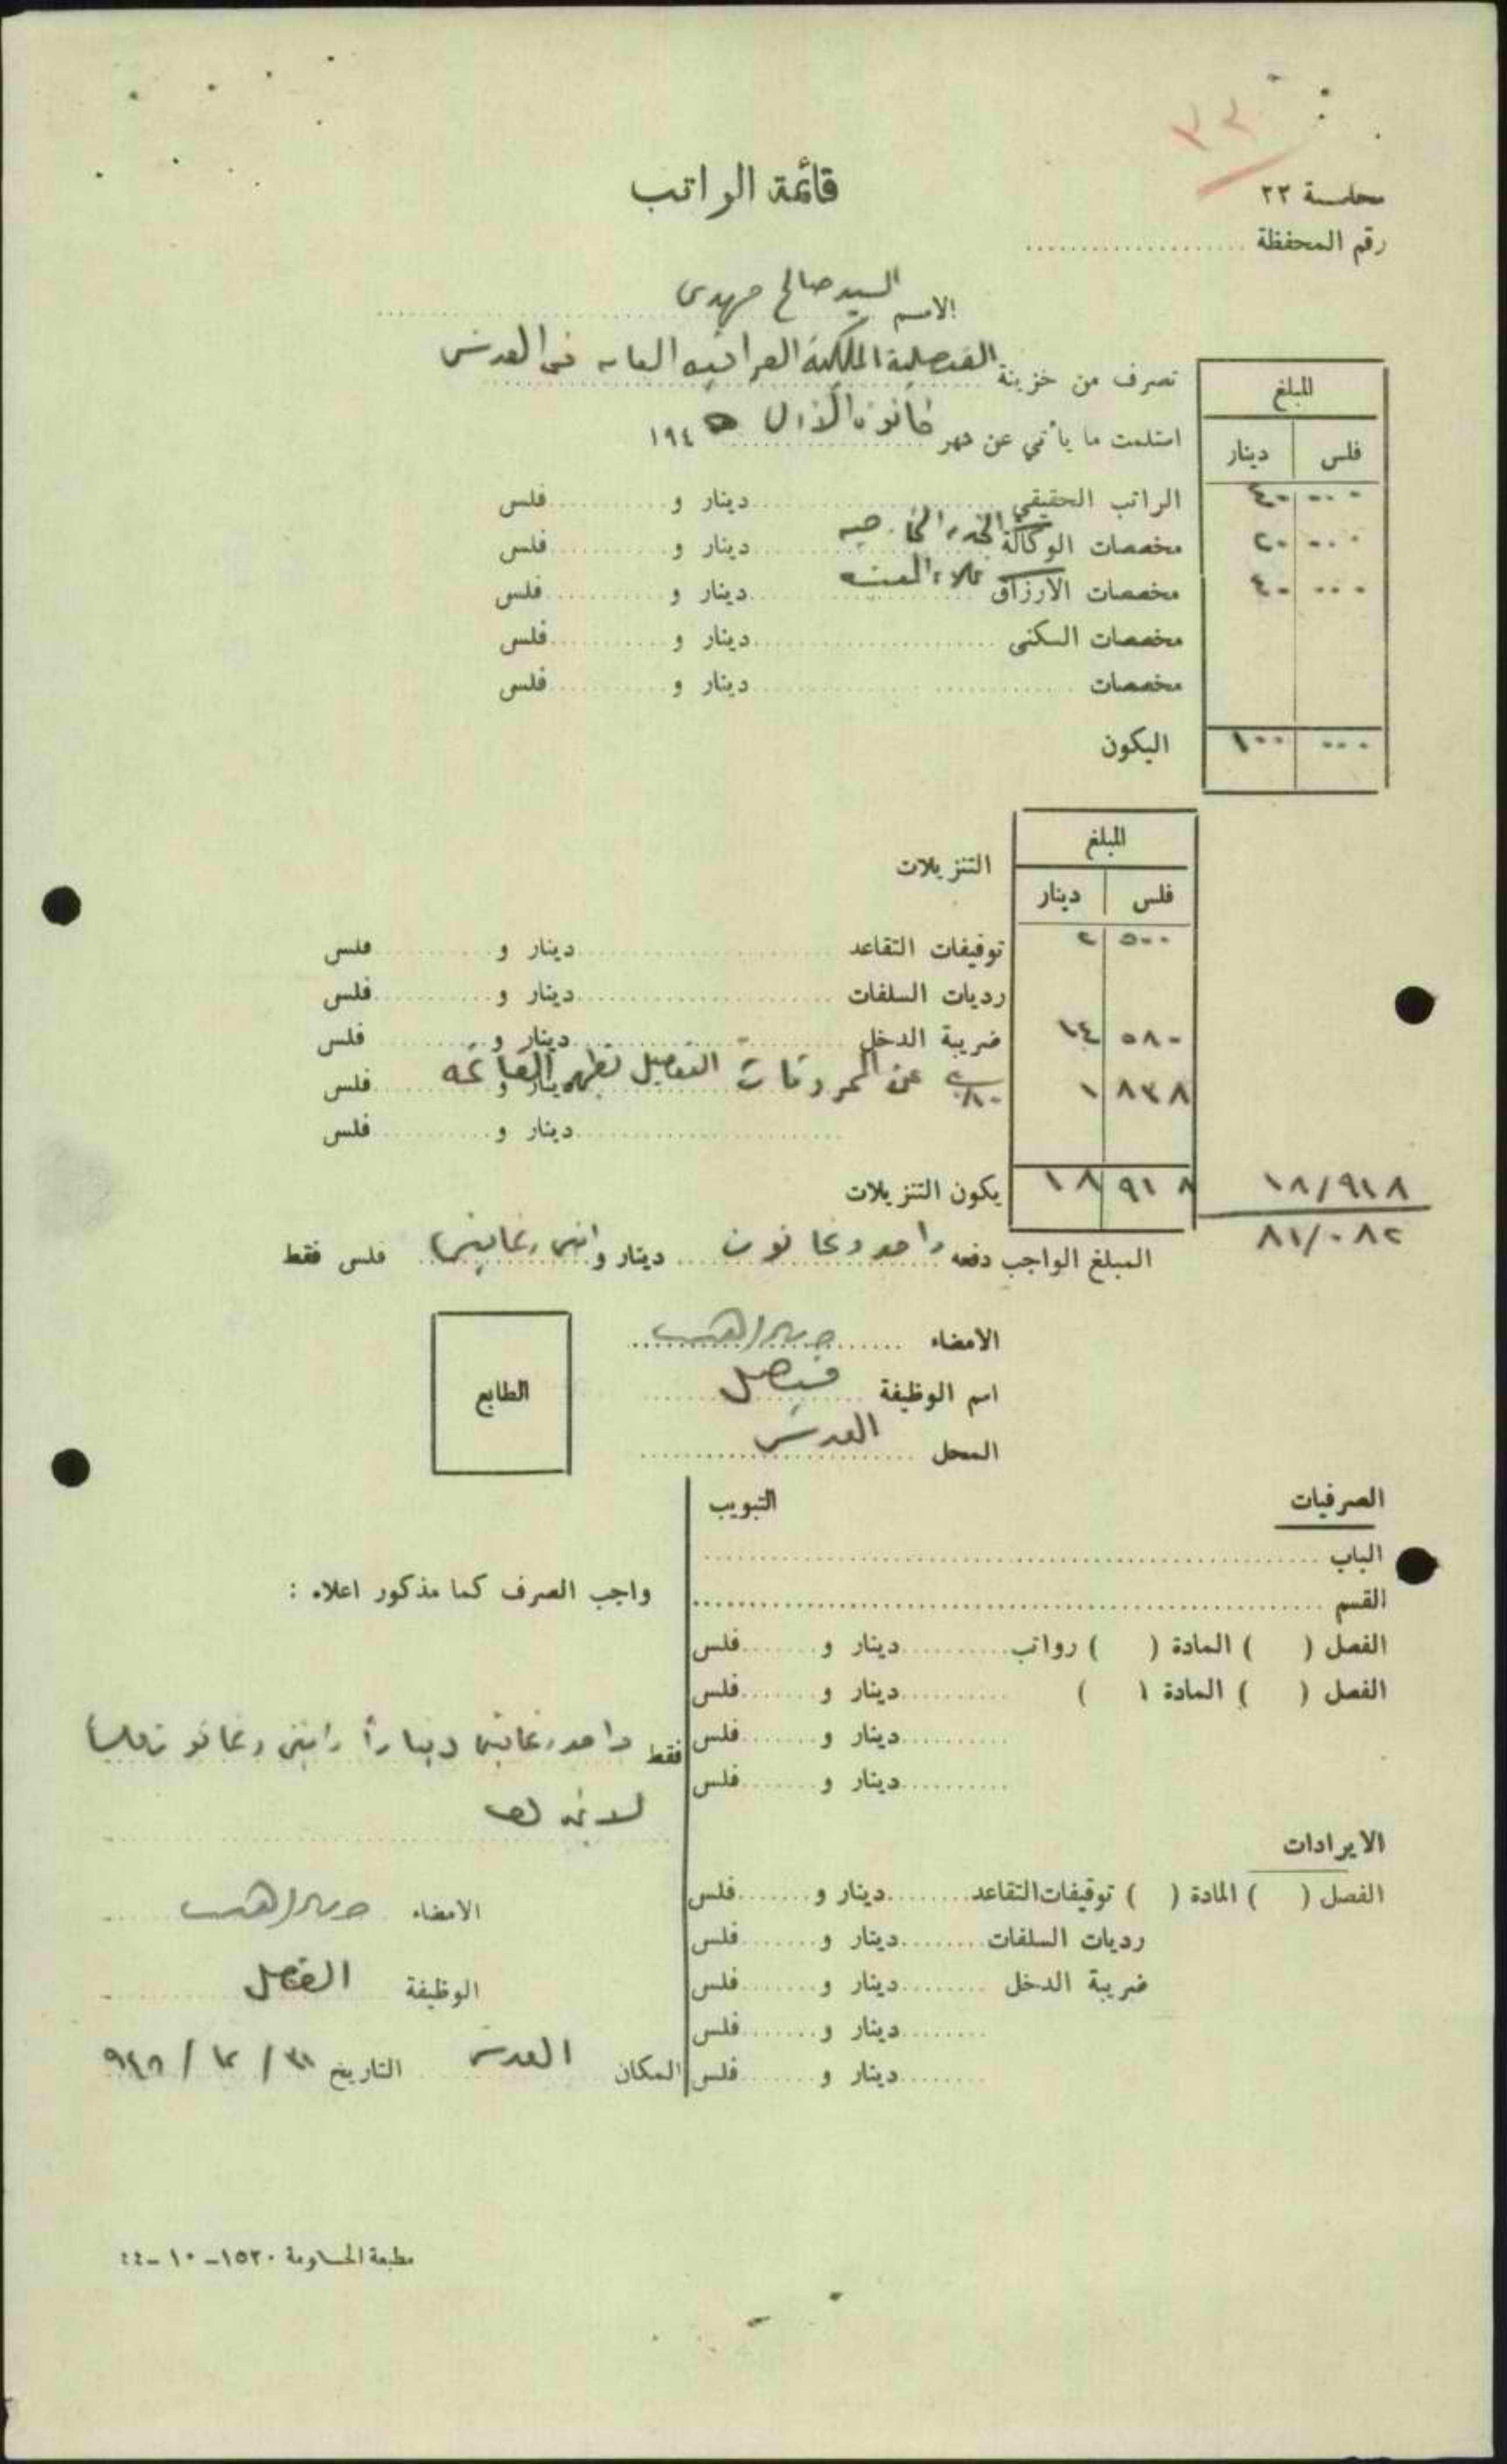 ٣٣
محاسبة ٢٣
قائمة الراتب
رقم المحفظة
الاسم السيد صالح مهدي
تصرف من خزينة القنصلية الملكية العراقية العامة في القدس
استلمت ما يأتي عن شهر كانون الاول ١٩٤٥
المبلغ
فلس دينار
الراتب الحقيقي دينار و فلس ٠٠٠ ٤٠
مخصصات الوكالة الخدمة الخارجية دينار و فلس ٠٠٠ ٢٠
مخصصات الارزاق غلاء المعيشة دينار و فلس ٠٠٠ ٤٠
مخصصات السكنى دينار و فلس
مخصصات دينار و فلس
اليكون ٠٠٠ ١٠٠
المبلغ
التنزيلات
فلس دينار
توقيفات التقاعد دينار و فلس ٥٠٠ ٢
رديات السلفات دينار و فلس
ضريبة الدخل دينار و فلس ٥٨٠ ١٤
عن المحروقات التفصيل بظهر القائمة دينار و فلس ٨٣٨ ١
دينار و فلس
يكون التنزيلات ٩١٨ ١٨
١٨/٩١٨
٨١/٠٨٢
المبلغ الواجب دفعه واحد وثمانون دينار و اثنين وثمانين فلس فقط
الامضاء
اسم الوظيفة قنصل
المحل القدس
الطابع
الصرفيات التبويب
الباب
القسم
الفصل ( ) المادة ( ) رواتب دينار و فلس
الفصل ( ) المادة ( ) دينار و فلس
دينار و فلس
دينار و فلس
الايرادات
الفصل ( ) المادة ( ) توقيفات التقاعد دينار و فلس
رديات السلفات دينار و فلس
ضريبة الدخل دينار و فلس
دينار و فلس
دينار و فلس
واجب الصرف كما مذكور اعلاه :
فقط واحد وثمانين ديناراً واثنى وثمانون فلساً
لا غير
الامضاء
الوظيفة القنصل
المكان القدس التاريخ ٣١ / ١٢ / ٩٤٥
مطبعة الحكومة ١٥٢٠-١٠-٤٤